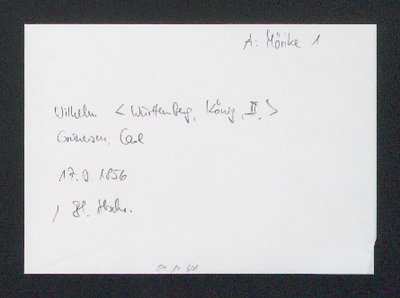 A: Mörike 1
Wilhelm < Württemberg, König, II. >
Grüneisen, Carl
17.9.1856
1 Bl. Hschr.